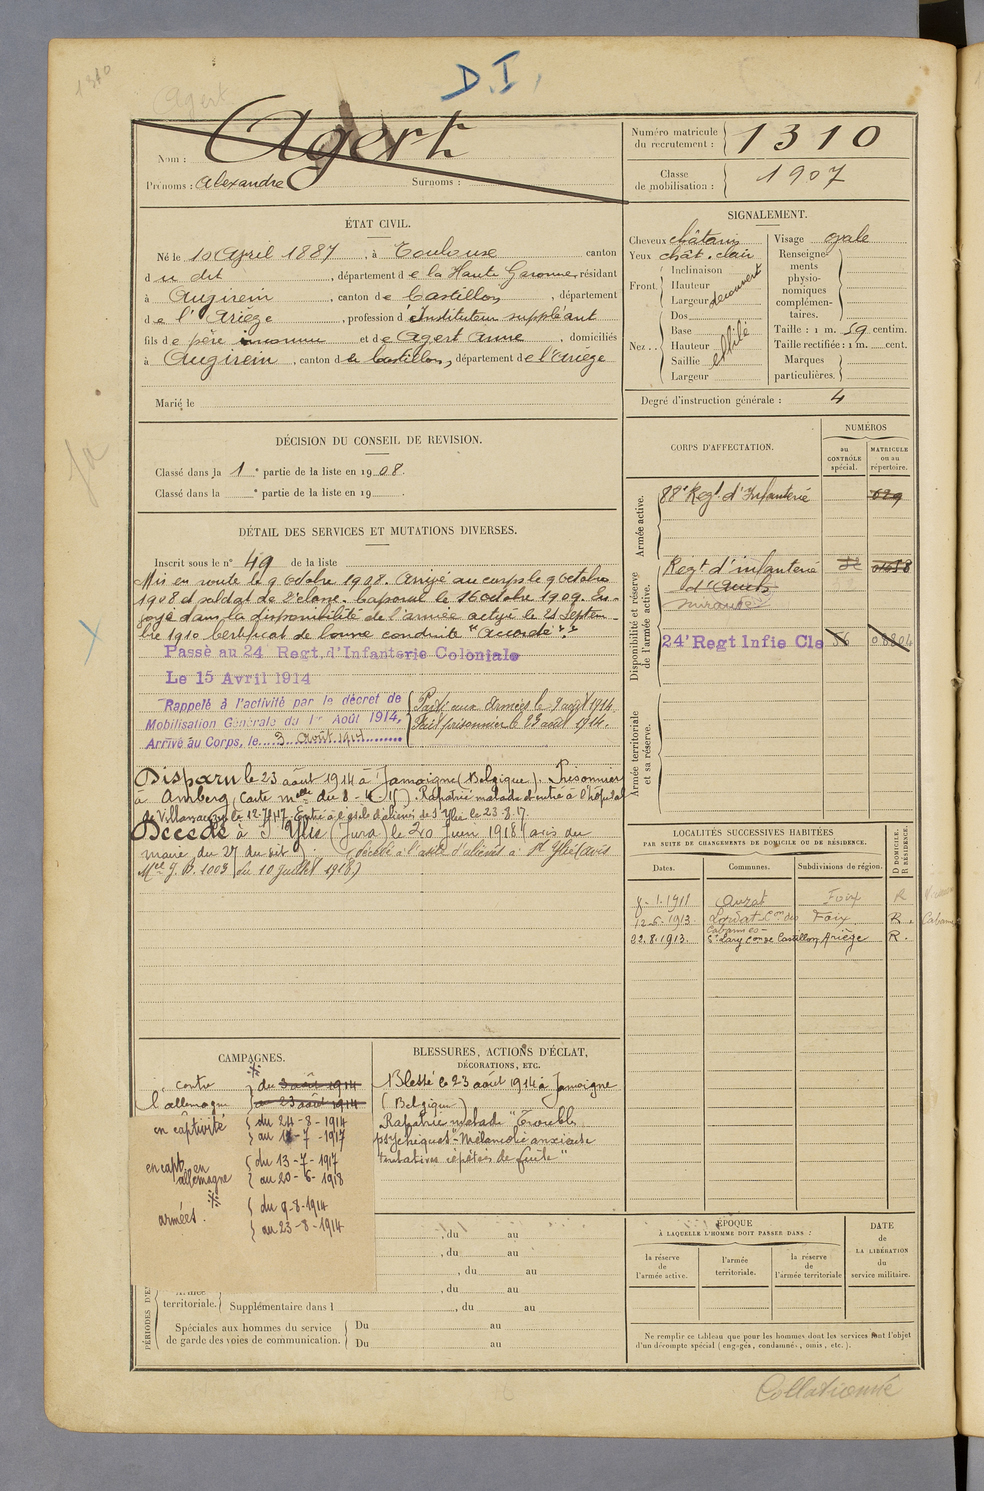 1310
Agert
D.I.
Nom : Agert
Prénoms : Alexandre Surnoms :
Numéro matricule du recrutement : 1310
Classe de mobilisation : 1907
ÉTAT CIVIL.
Né le 10 Avril 1887, à Toulouse canton
du dit, département de la Haute Garonne, résidant
à Augirein, canton de Castillon, département
de l'Ariège, profession d'Instituteur suppléant
fils de père inconnu et de Agert Anne, domiciliés
à Augirein, canton de Castillon, département de l'Ariège
Marié le
SIGNALEMENT.
Cheveux châtains
Yeux chât. clair
Front. Inclinaison
Hauteur
Largeur découvert
Nez .. Dos
Base
Hauteur
Saillie effilé
Largeur
Visage ovale
Renseignements physionomiques complémentaires.
Taille : 1 m. 59 centim.
Taille rectifiée : 1 m. cent.
Marques particulières.
Degré d'instruction générale : 4
DÉCISION DU CONSEIL DE REVISION.
Classé dans la 1e partie de la liste en 1908.
Classé dans la e partie de la liste en 19 .
DÉTAIL DES SERVICES ET MUTATIONS DIVERSES.
Inscrit sous le n° 49 de la liste
Mis en route le 9 octobre 1908. Arrivé au corps le 9 octobre
1908 et soldat de 2e classe. Caporal le 16 octobre 1909. En-
voyé dans la disponibilité de l'armée active le 21 Septem-
bre 1910 Certificat de bonne conduite "Accordé"
Passé au 24 Regt. d'Infanterie Coloniale
Le 15 Avril 1914
Rappelé à l'activité par le décret de
Mobilisation Générale du 1er Août 1914,
Arrivé au Corps, le 3 Août 1914
Parti aux Armées le 9 août 1914.
Fait prisonnier le 23 août 1914.
Disparu le 23 août 1914 à Jamoigne (Belgique). Prisonnier
à Amberg, (Carte melle du 8-4-15). Rapatrié malade et entré à l'hôpital
de le 12-7-17. Entré à l'asile d'aliénés de St Ylie le 23.8.17.
Décédé à St Ylie (Jura) le 20 Juin 1918 (avis du
maire du 27 du dit). (décédé à l'asile d'aliénés à St Ylie (avis
Mel J.B. 1003 du 10 juillet 1918)
CORPS D'AFFECTATION.
NUMÉROS
au CONTRÔLE spécial.
MATRICULE ou au répertoire.
Armée active.
88e Regt d'Infanterie
Disponibilité et réserve de l'armée active.
Regt d'infanterie
d'Auch
Mirande
24e Regt Infie Cle 56 08804
Armée territoriale et sa réserve.
LOCALITÉS SUCCESSIVES HABITÉES
PAR SUITE DE CHANGEMENTS DE DOMICILE OU DE RÉSIDENCE.
Dates. Communes. Subdivisions de région. D DOMICILE. R RÉSIDENCE.
8-1-1911 Auzat Foix R
12-6-1913. Lordat Con des Cabannes Foix R.
22.8.1913. St Lary Con de Castillon Ariège R.
CAMPAGNES.
contre l'allemagne du 3 août 1914
au 23 août 1914
en captivité du 24-8-1914
au 12-7-1917
en capt. en allemagne du 13-7-1917
au 20-6-1918
armées. du 9-8-1914
au 23-8-1914
BLESSURES, ACTIONS D'ÉCLAT,
DÉCORATIONS, ETC.
Blessé le 23 août 1914 à Jamoigne
(Belgique)
Rapatrié malade "Troubles
psychiques" - Mélancolie anxieuse
tentatives répétées de fuite"
, du au
, du au
, du au
, du au
territoriale. Supplémentaire dans l , du au
Spéciales aux hommes du service Du au
de garde des voies de communication. Du au
ÉPOQUE
À LAQUELLE L'HOMME DOIT PASSER DANS :
la réserve de l'armée active.
l'armée territoriale.
la réserve de l'armée territoriale
DATE de LA LIBÉRATION du service militaire.
Ne remplir ce tableau que pour les hommes dont les services font l'objet
d'un décompte spécial (engagés, condamnés, omis, etc.).
Collationné